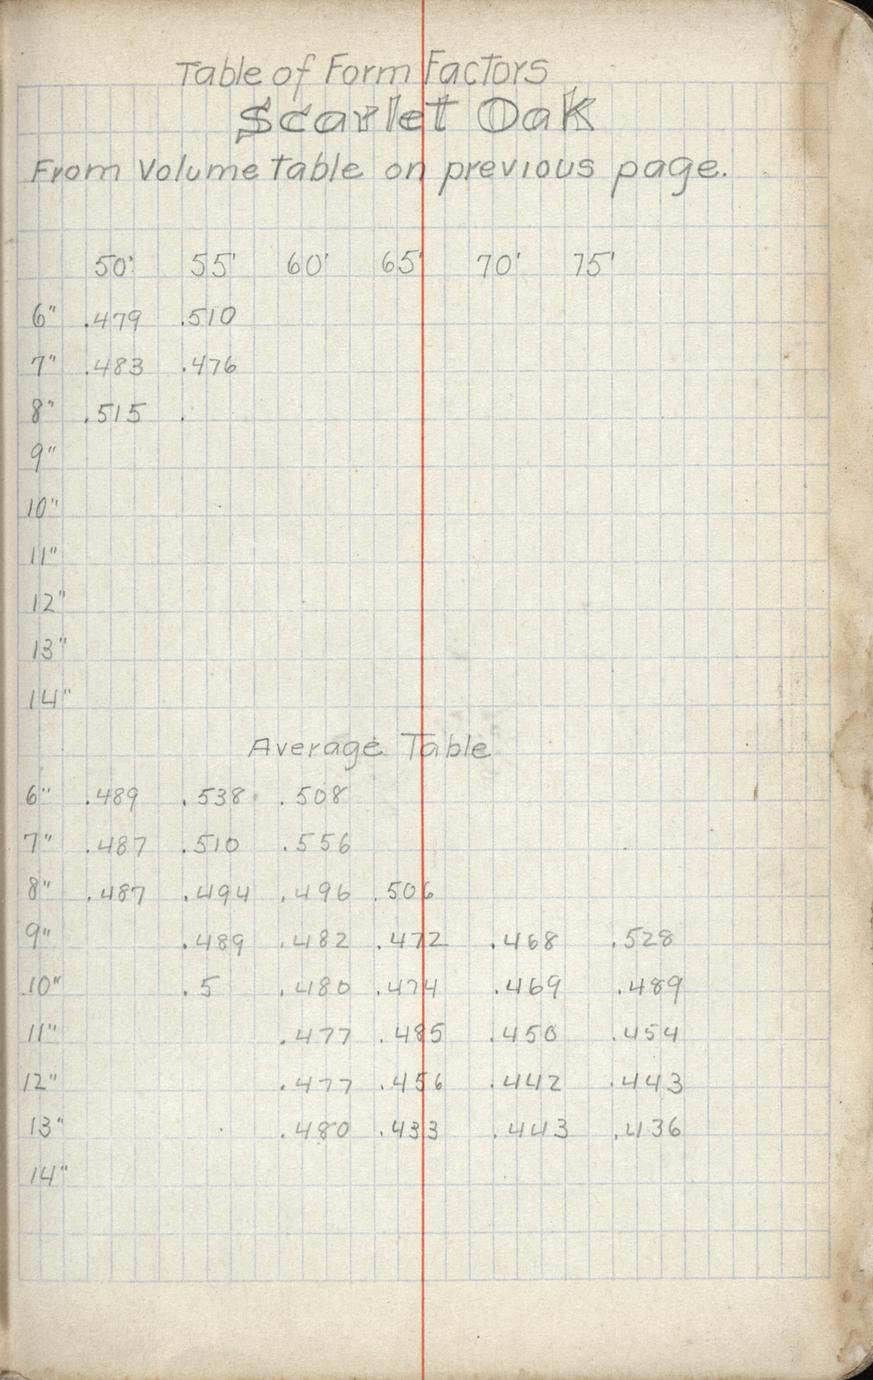 Table of Form Factors
Scarlet Oak
From Volume Table on previous page.
50' 55' 60' 65' 70' 75'
6" .479 .510
7" .483 .476
8" .515 .
9"
10"
11"
12"
13"
14"
Average Table
6" .489 .538 .508
7" .487 .510 .556
8" .487 .494 .496 .506
9" .489 .482 .472 .468 .528
10" .5 .480 .474 .469 .489
11" .477 .485 .450 .454
12" .477 .456 .442 .443
13" .480 .433 .443 .436
14"